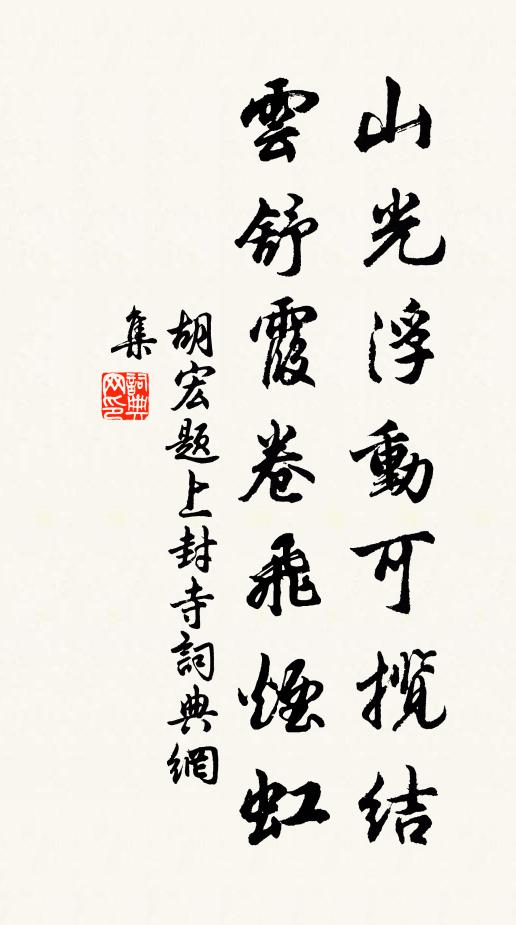 山光浮動可攬結
雲舒霞卷飛煙虹
胡宏題上封寺詞典網
集
詞典
网印